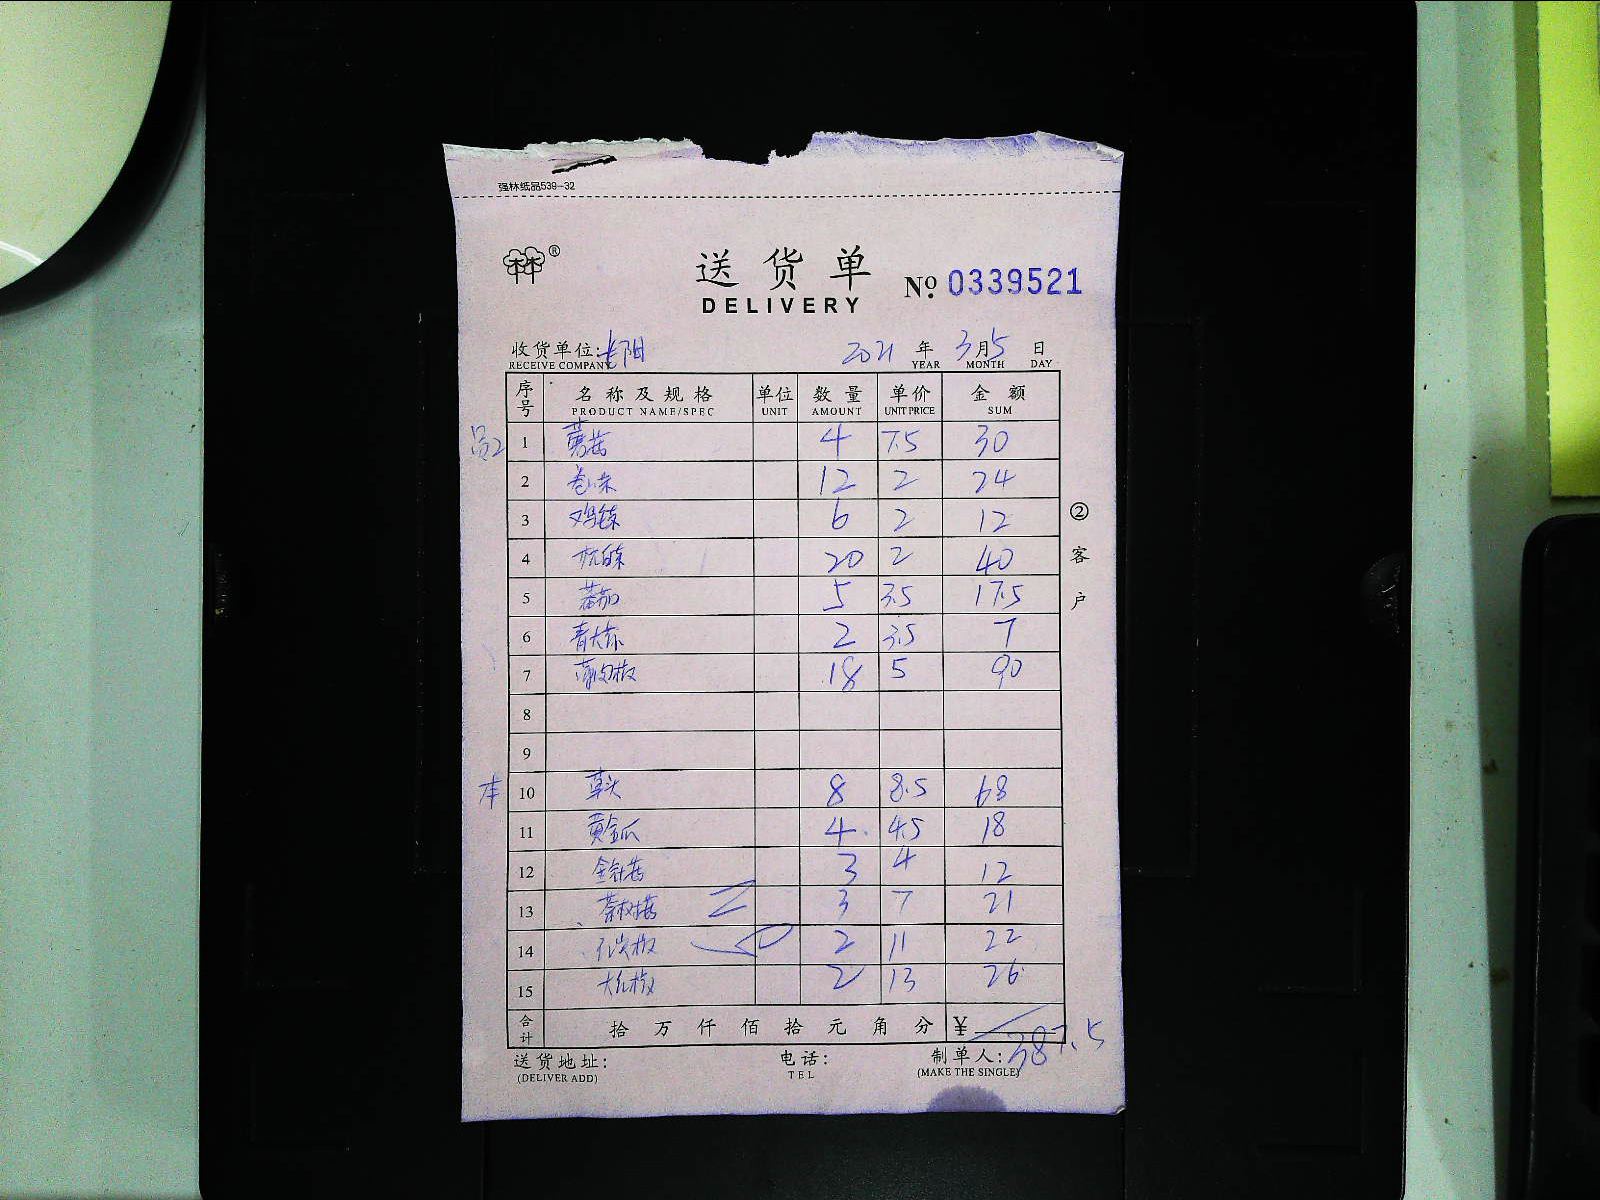 强林纸品539-32
送货单 No. 0339521
DELIVERY
收货单位: 长阳 2021 年 3 月 5 日
RECEIVE COMPANY YEAR MONTH DAY
序号 名称及规格 单位 数量 单价 金额
PRODUCT NAME/SPEC UNIT AMOUNT UNIT PRICE SUM
1 蘑菇 4 7.5 30
2 卷心菜 12 2 24
3 6 2 12
4 杭白菜 20 2 40
5 蕃茄 5 3.5 17.5
6 青大 2 3.5 7
7 薄皮椒 18 5 90
8
9
本 10 草头 8 8.5 68
11 黄金瓜 4 4.5 18
12 金针菇 3 4 12
13 茶树菇 3 7 21
14 2 11 22
15 大红椒 2 13 26
合计 拾 万 仟 佰 拾 元 角 分 ¥ 387.5
送货地址: 电话: 制单人:
(DELIVER ADD) TEL (MAKE THE SINGLE)
②客户